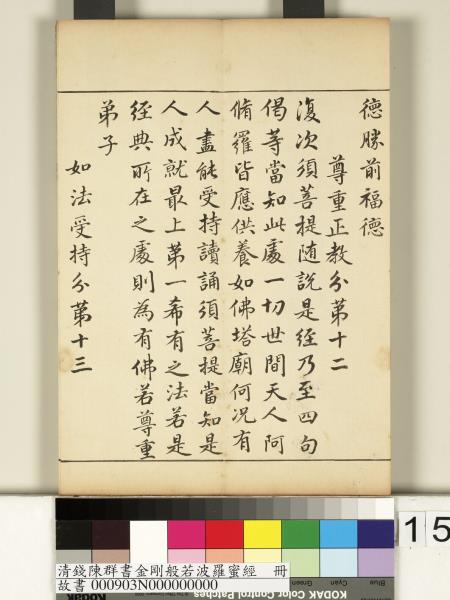 德勝前福德
尊重正教分第十二
復次須菩提随說是經乃至四句
偈等當知此處一切世間天人阿
脩羅皆應供養如佛塔廟何況有
人盡能受持讀誦須菩提當知是
人成就最上第一希有之法若是
經典所在之處則為有佛若尊重
弟子
如法受持分第十三
15
清錢陳群書金剛般若波羅蜜經 冊
故書 000903N000000000
Green
Cyan
Blue
KODAK Color Control Patches